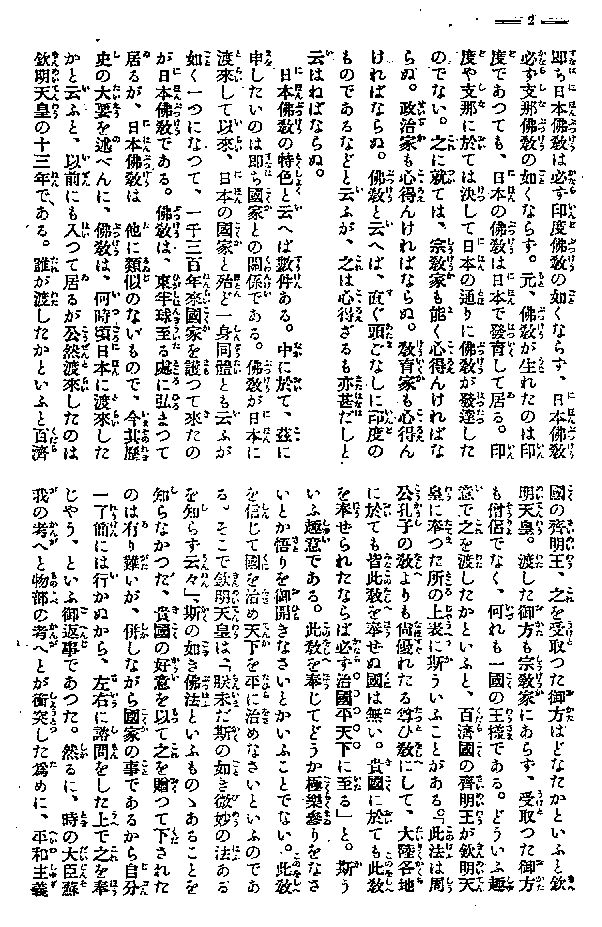 2
即ち日本佛敎は必ず印度佛敎の如くならず、日本佛敎
必ず支那佛敎の如くならず。元、佛敎が生れたのは印
度であつても、日本の佛敎は日本で發育して居る。印
度や支那に於ては決して日本の通りに佛敎が發達した
のでない。之に就ては、宗敎家も能く心得んければな
らぬ。政治家も心得んければならぬ。敎育家も心得ん
ければならぬ。佛敎と云へば、直ぐ頭ごなしに印度の
ものであるなどと云ふが、之は心得ざるも亦甚だしと
云はねばならぬ。
日本佛敎の特色と云へば數件ある。中に於て、玆に
申したいのは卽ち國家との關係である。佛敎が日本に
渡來して以來、日本の國家と殆ど一身同體とも云ふが
如く一つになつて、一千三百年來國家を護つて來たの
が日本佛敎である。佛敎は、東半球至る處に弘まつて
居るが、日本佛敎は他に類似のないもので、今其歷
史の大要を述べんに、佛敎は、何時頃日本に渡來した
かと云ふと、以前にも入つて居るが公然渡來したのは
欽明天皇の十三年である。誰が渡したかといふと百濟
國の齊明王、之を受取つた御方はどなたかといふと欽
明天皇。渡した御方も宗敎家にあらず、受取つた御方
も僧侶でなく、何れも一國の王樣である。どういふ趣
意で之を渡したかといふと、百濟國の齊明王が欽明天
皇に奉つた所の上表に斯ういふことがある。「此法は周
公孔子の敎よりも尙優れたる尊ひ敎にして、大陸各地
に於ても皆此敎を奉せぬ國は無い。貴國に於ても此敎
を奉せられたならば必ず治國平天下に至る」と。斯う
いふ趣意である。此敎を奉じてどうか極樂參りをなさ
いとか悟りを御開きなさいとかいふことでない。此敎
を信じて國を治め天下を平に治めなさいといふのであ
る。そこで欽明天皇は「朕未だ斯の如き微妙の法ある
を知らず云々」、斯の如き佛法といふものゝあることを
知らなかつた、貴國の好意を以て之を贈つて下された
のは有り難いが、倂しながら國家の事であるから自分
一了簡には行かぬから、左右に諮問をした上で之を奉
じやう、といふ御返事であつた。然るに、時の大臣蘇
我の考へと物部の考へとが衝突した爲めに、平和主義